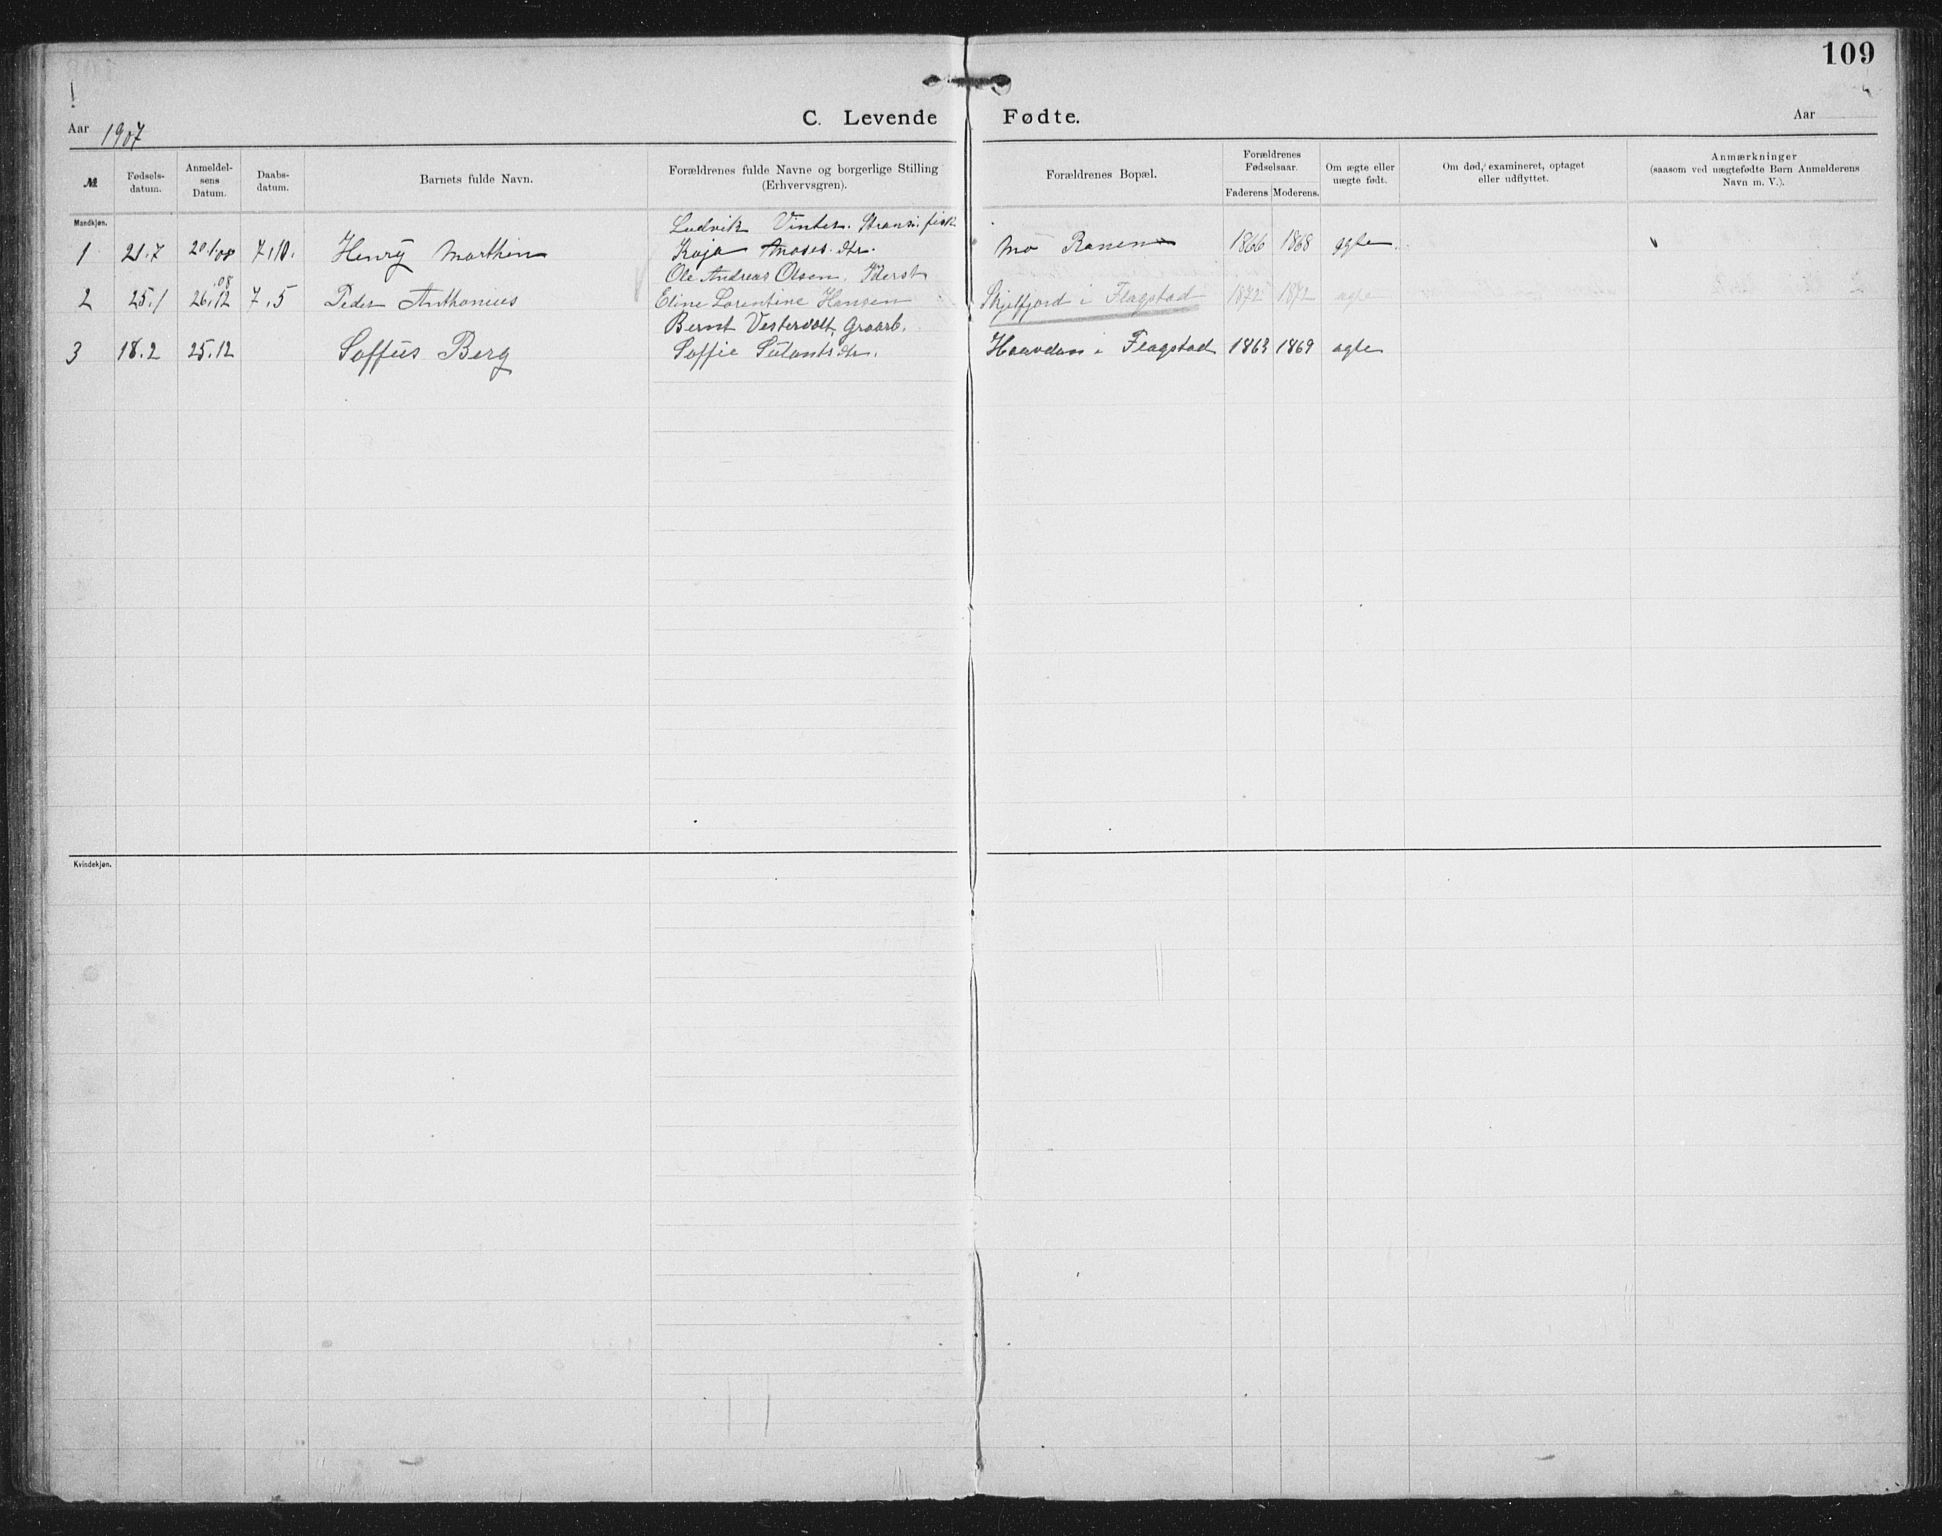 109
C. Levende Fødte.
Aar 1907
Aar
№
Fødsels-
datum.
Anmeldel-
sens
Datum.
Daabs-
datum.
Barnets fulde Navn.
Forældrenes fulde Navne og borgerlige Stilling
(Erhvervsgren).
Forældrenes Bopæl.
Forældrenes
Fødselsaar.
Faderens Moderens.
Om ægte eller
uægte født.
Om død, examineret, optaget
eller udflyttet.
Anmærkninger
(saasom ved uægtefødte Børn Anmelderens
Navn m. V.).
Mandkjøn.
Ludvik Vinter. fisk
1 21.7 20/1 08 7.10. Henry Marthin Kaja Moses.dtr. Mo Ranen 1866 1868 ægte
Ole Andreas Olsen.
2 25.1 26.12 08 7.5 Peder Anthonius Eline Lorentine Hansen Skjelfjord i Flagstad 1872 1872 ægte
Bernt Vestervolt. Graarb.
3 18.2 25.12 Soffus Berg Soffie i Flagstad 1863 1869 ægte
Kvindekjøn.